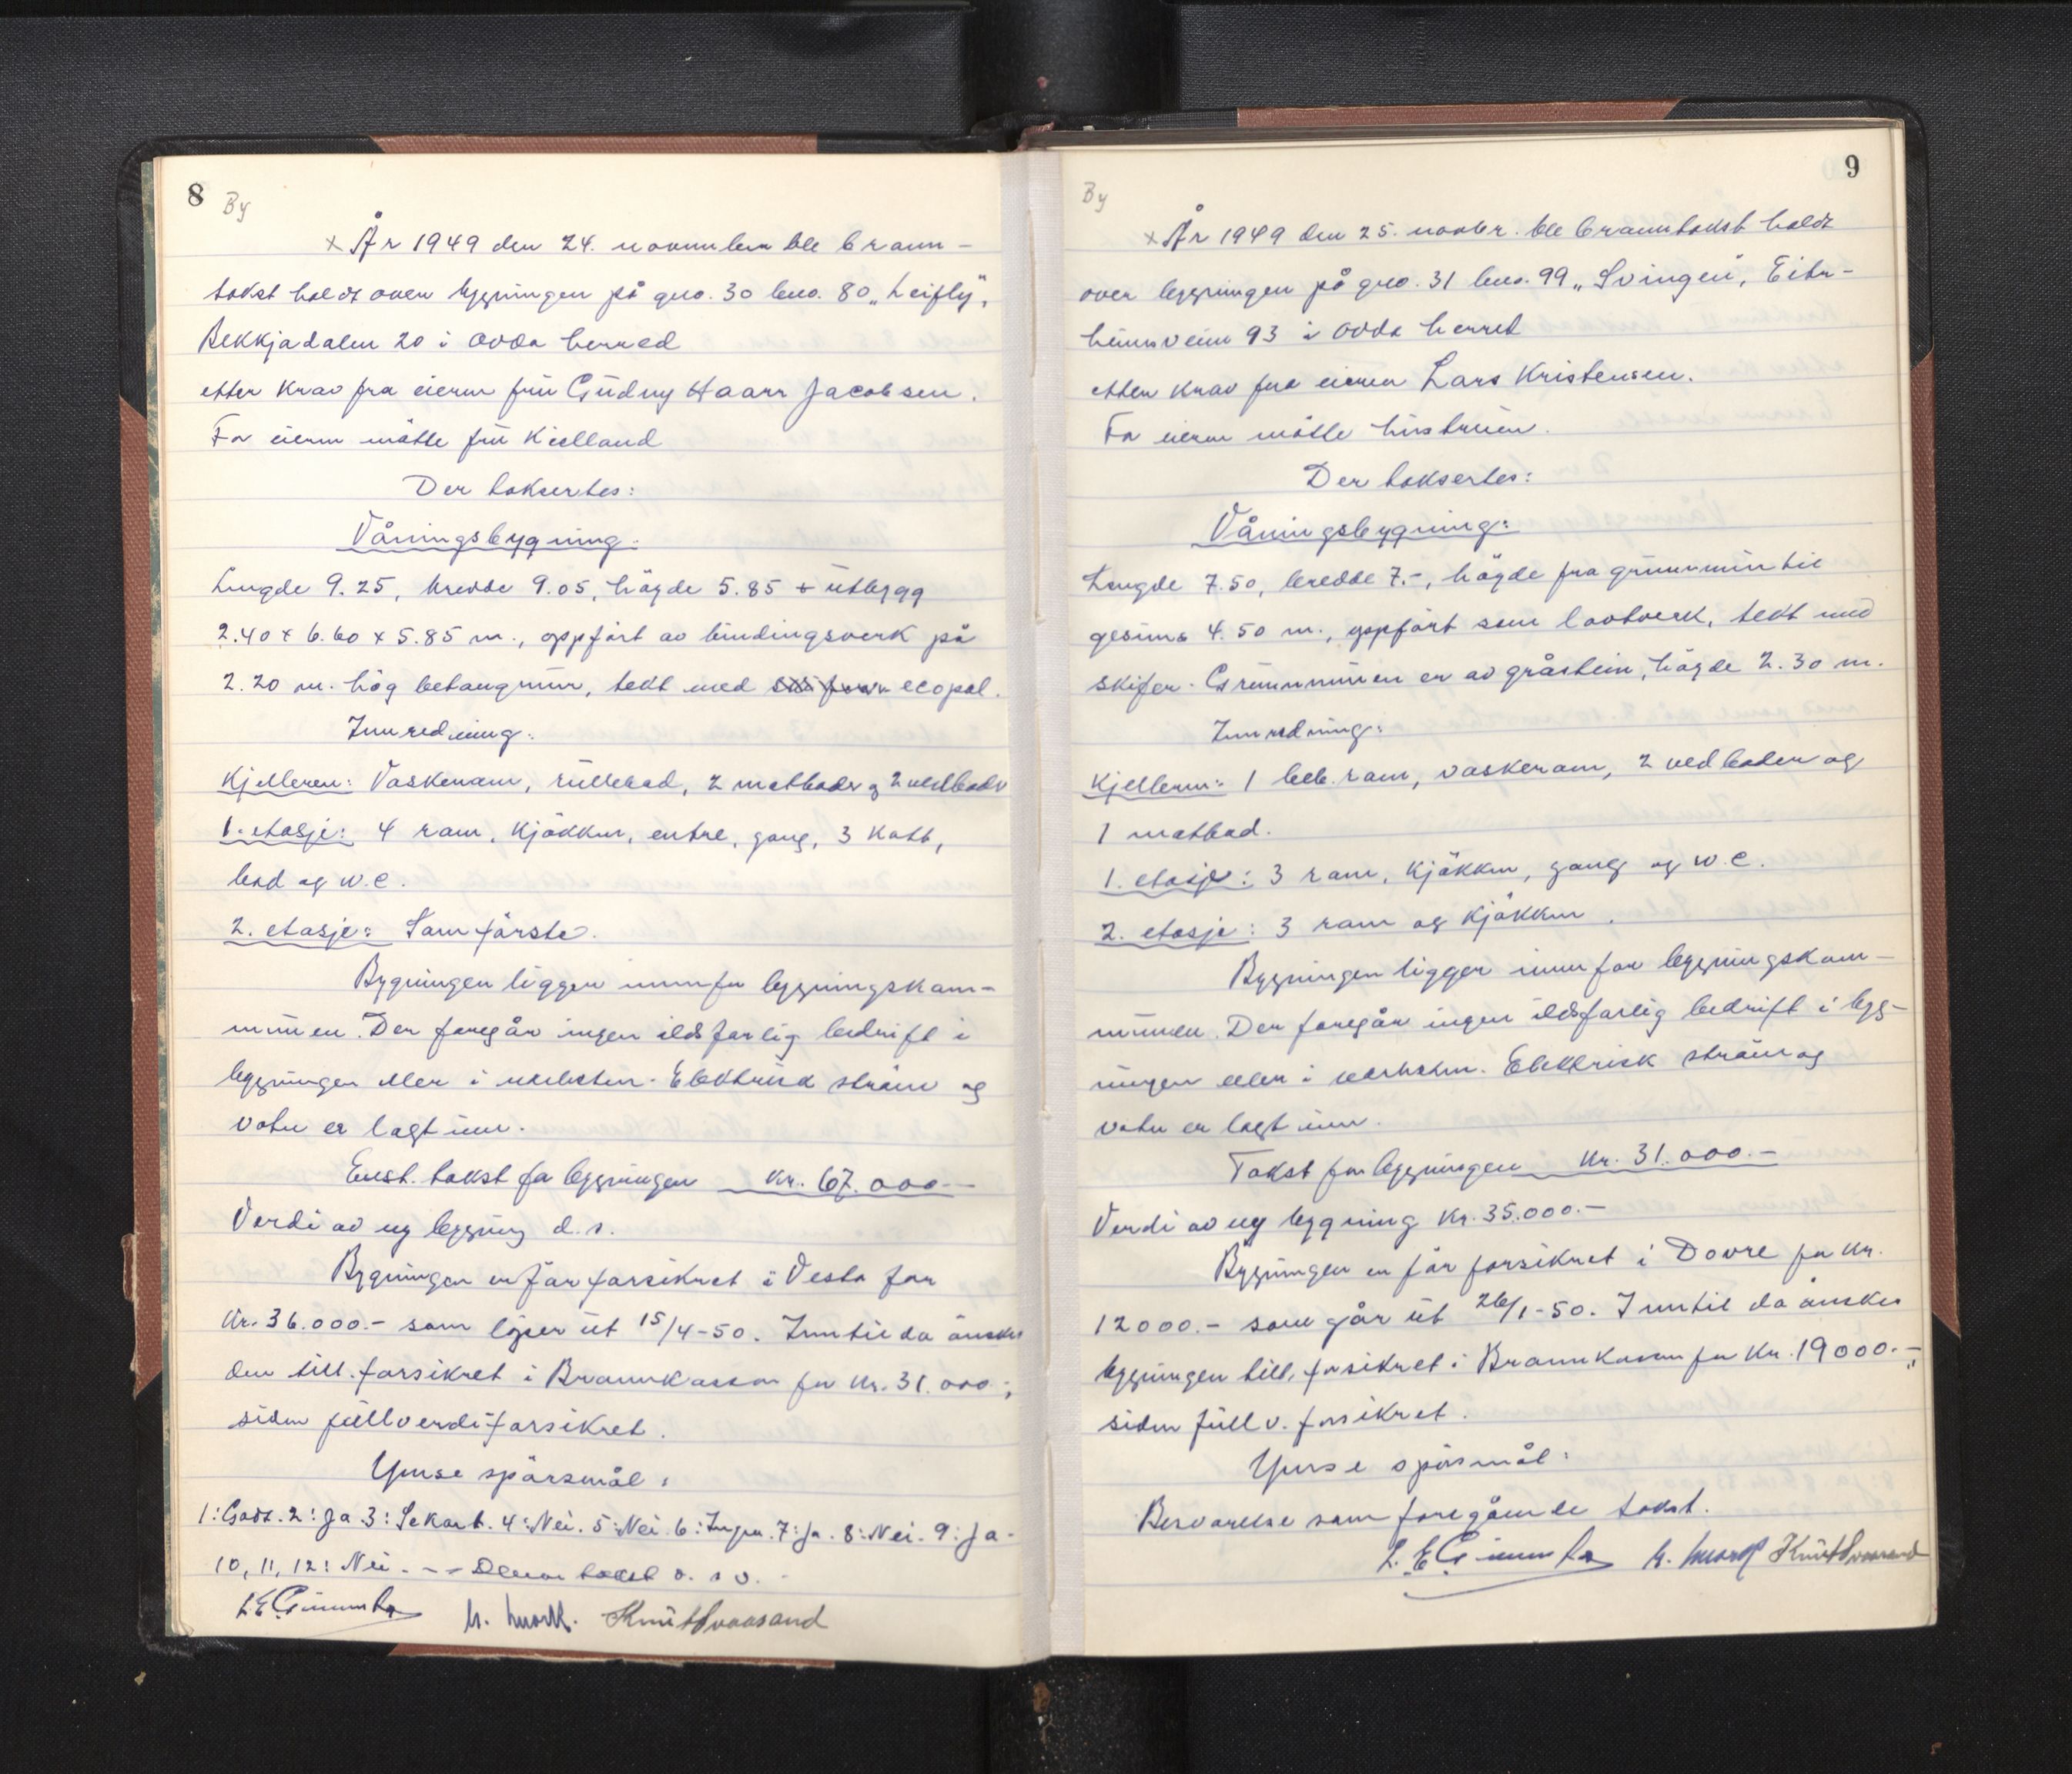 8
By
x År 1949 den 24. november ble brann-
takst holdt over bygningen på gno. 30 bno. 80 „Leifly",
Bekkjadalen 20 i Odda herred
etter krav fra eieren fru Gudny Haarr Jacobsen.
For eieren møtte fru Kielland
Der taksertes:
Våningsbygning:
Lengde 9.25, bredde 9.05, høgde 5.85 + utbygg
2.40 x 6.60 x 5.85 m., oppført av bindingsverk på
2.20 m. høg betongmur, tekt med ecopal.
Innredning:
Kjelleren: Vaskerom, rullebod, 2 matboder og 2 vedboder
1. etasje: 4 rom, kjøkken, entre, gang, 3 kott,
bad og w.c.
2. etasje: Som første.
Bygningen ligger innenfor bygningskom-
munen. Der foregår ingen ildsfarlig bedrift i
bygningen eller i nærheten. Elektrisk strøm og
vatn er lagt inn.
Enst. takst for bygningen kr. 67.000.-
Verdi av ny bygning d.s.
Bygningen er før forsikret i Vesta for
kr. 36.000.- som løper ut 15/4-50. Inntil da ønskes
den till. forsikret i Brannkassen for kr. 31.000.-,
siden fullverdiforsikret.
Ymse spørsmål:
1: Godt. 2: Ja 3: Se kart. 4: Nei. 5: Nei 6: Ingen. 7: Ja. 8: Nei. 9: Ja.
10, 11, 12: Nei. - - Denne takst o. s v.
L E h. Mork. Knut Svaasand
9
By
x År 1949 den 25. novbr. ble branntakst holdt
over bygningen på gno. 31 bno. 99 „Svingen", Eitr-
heimsveien 93 i Odda herred
etter krav fra eieren Lars Kristensen.
For eieren møtte hustruen.
Der taksertes:
Våningsbygning:
Lengde 7.50, bredde 7.-, høgde fra grunnmur til
gesims 4.50 m., oppført som laftverk, tekt med
skifer. Grunnmuren er av gråstein, høgde 2.30 m.
Innredning:
Kjelleren: 1 beb. rom, vaskerom, 2 vedboder og
1 matbod.
1. etasje: 3 rom, kjøkken, gang og w.c.
2. etasje: 3 rom og kjøkken.
Bygningen ligger innenfor bygningskom-
munen. Der foregår ingen ildsfarlig bedrift i byg-
ningen eller i nærheten. Elektrisk strøm og
vatn er lagt inn.
Takst for bygningen kr. 31.000.-
Verdi av ny bygning kr. 35.000.-
Bygningen er før forsikret i Dovre for kr.
12000.- som går ut 26/1-50. Inntil da ønskes
bygningen till. forsikret i Brannkassen for kr. 19000.-,
siden fullv. forsikret.
Ymse spørsmål:
Besvarelse som foregående takst.
L. E h. Mork Knut Svaasand